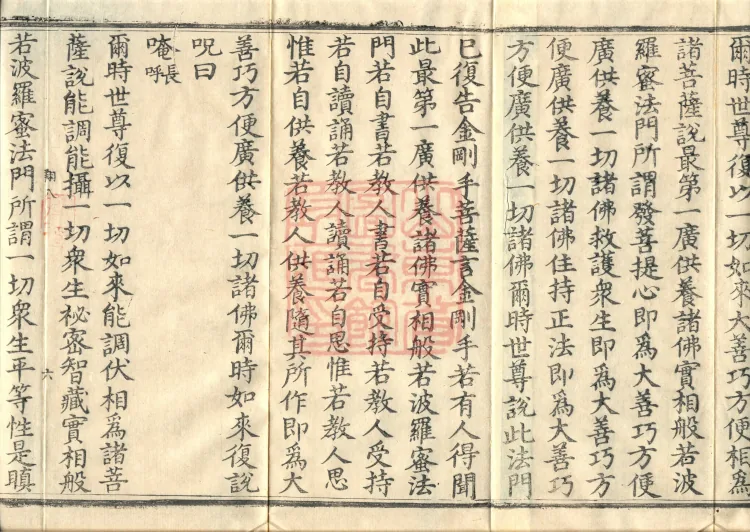 爾時世尊復以一切如來大善巧方便相爲
諸菩薩說最第一廣供養諸佛實相般若波
羅蜜法門所謂發菩提心即爲大善巧方便
廣供養一切諸佛救護衆生即爲大善巧方
便廣供養一切諸佛住持正法即爲大善巧
方便廣供養一切諸佛爾時世尊說此法門
已復告金剛手菩薩言金剛手若有人得聞
此最第一廣供養諸佛實相般若波羅蜜法
門若自書若教人書若自受持若教人受持
若自讀誦若教人讀誦若自思惟若教人思
惟若自供養若教人供養隨其所作即爲大
善巧方便廣供養一切諸佛爾時如來復說
呪曰
唵長呼
爾時世尊復以一切如來能調伏相爲諸菩
薩說能調能攝一切衆生祕密智藏實相般
翔八
六
若波羅蜜法門所謂一切衆生平等性是瞋